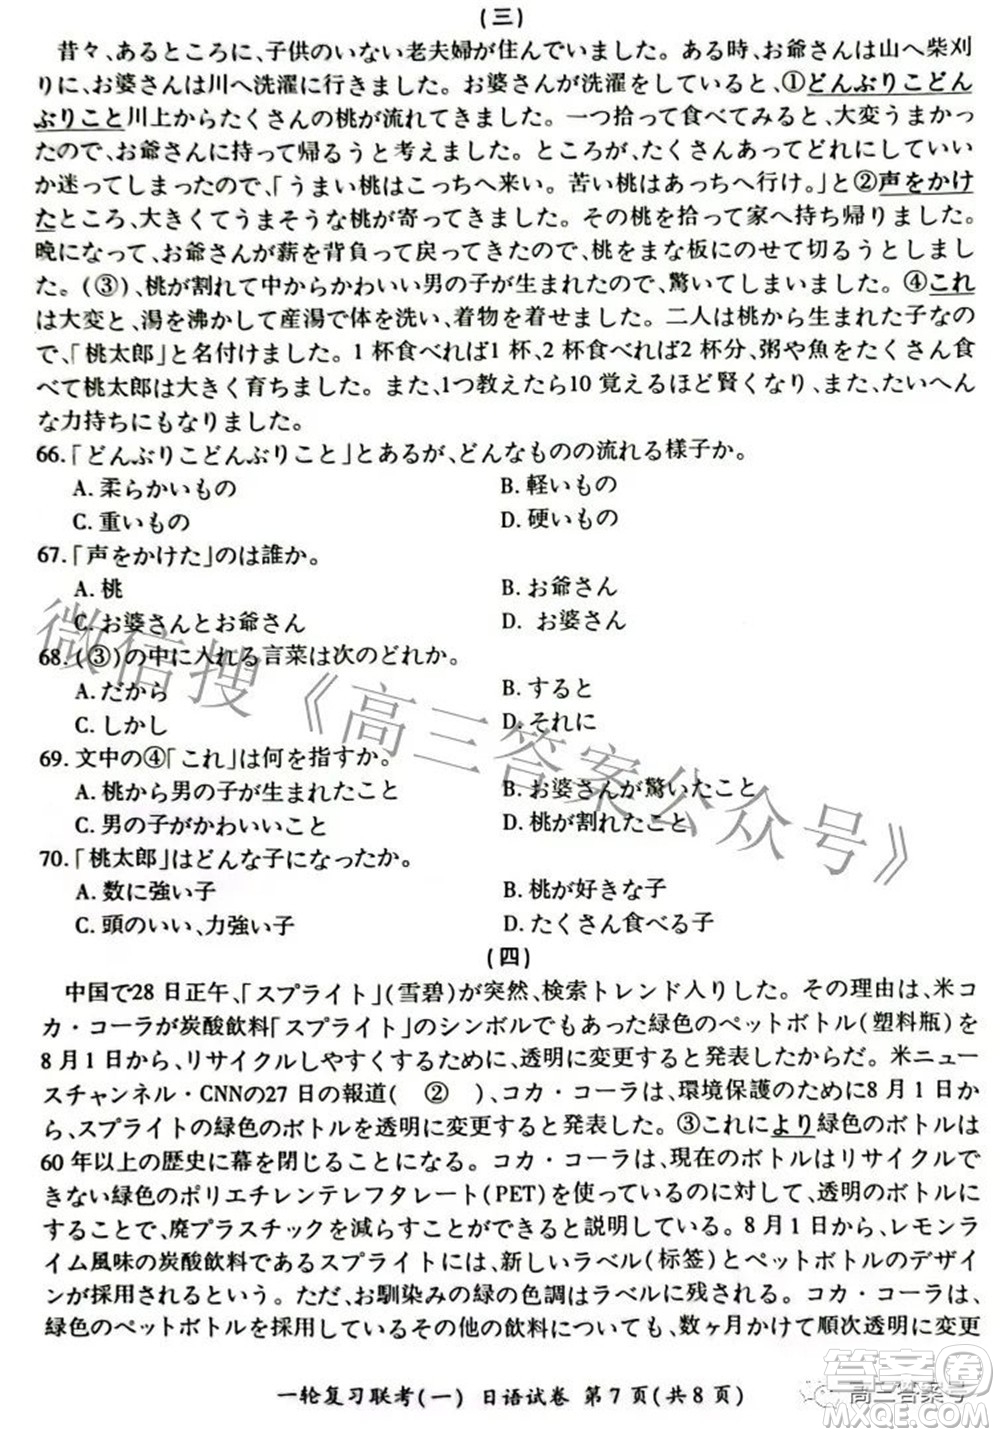 (三)
昔々、あるところに、子供のいない老夫婦が住んでいました。ある時、お爺さんは山へ柴刈
りに、お婆さんは川へ洗濯に行きました。お婆さんが洗濯をしていると、①どんぶりこどん
ぶりこと川上からたくさんの桃が流れてきました。一つ拾って食べてみると、大変うまかっ
たので、お爺さんに持って帰るうと考えました。ところが、たくさんあってどれにしていい
か迷ってしまったので、「うまい桃はこっちへ来い。苦い桃はあっちへ行け。」と②声をかけ
たところ、大きくてうまそうな桃が寄ってきました。その桃を拾って家へ持ち帰りました。
晩になって、お爺さんが薪を背負って戻ってきたので、桃をまな板にのせて切るうとしまし
た。(③)、桃が割れて中からかわいい男の子が生まれたので、驚いてしまいました。④これ
は大変と、湯を沸かして産湯で体を洗い、着物を着せました。二人は桃から生まれた子なの
で、「桃太郎」と名付けました。1杯食べれば1杯、2杯食べれば2杯分、粥や魚をたくさん食
べて桃太郎は大きく育ちました。また、1つ教えたら10覚えるほど賢くなり、また、たいへん
な力持ちにもなりました。
66.「どんぶりこどんぶりこと」とあるが、どんなものの流れる様子か。
A. 柔らかいもの B. 軽いもの
C. 重いもの D. 硬いもの
67.「声をかけた」のは誰か。
A. 桃 B. お爺さん
C. お婆さんとお爺さん D. お婆さん
68.(③)の中に入れる言菜は次のどれか。
A. だから B. すると
C. しかし D. それに
69. 文中の④「これ」は何を指すか。
A. 桃から男の子が生まれたこと B. お婆さんが驚いたこと
C. 男の子がかわいいこと D. 桃が割れたこと
70.「桃太郎」はどんな子になったか。
A. 数に強い子 B. 桃が好きな子
C. 頭のいい、力強い子 D. たくさん食べる子
(四)
中国で28日正午、「スプライト」(雪碧)が突然、検索トレンド入りした。その理由は、米コ
カ・コーラが炭酸飲料「スプライト」のシンボルでもあった緑色のペットボトル(塑料瓶)を
8月1日から、リサイクルしやすくするために、透明に変更すると発表したからだ。米ニュー
スチャンネル・CNNの27日の報道( ② )、コカ・コーラは、環境保護のために8月1日か
ら、スプライトの緑色のボトルを透明に変更すると発表した。③これにより緑色のボトルは
60年以上の歴史に幕を閉じることになる。コカ・コーラは、現在のボトルはリサイクルで
きない緑色のポリエチレンテレフタレート(PET)を使っているのに対して、透明のボトルに
することで、廃プラスチックを減らすことができると説明している。8月1日から、レモンラ
イム風味の炭酸飲料であるスプライトには、新しいラベル(标签)とペットボトルのデザイ
ンが採用されるという。ただ、お馴染みの緑の色調はラベルに残される。コカ・コーラは、
緑色のペットボトルを採用しているその他の飲料についても、数ヶ月かけて順次透明に変更
一轮复习联考(一) 日语试卷 第7页(共8页)
微信搜《高三答案公众号》
高三答案号
答案圈
MXQE.COM